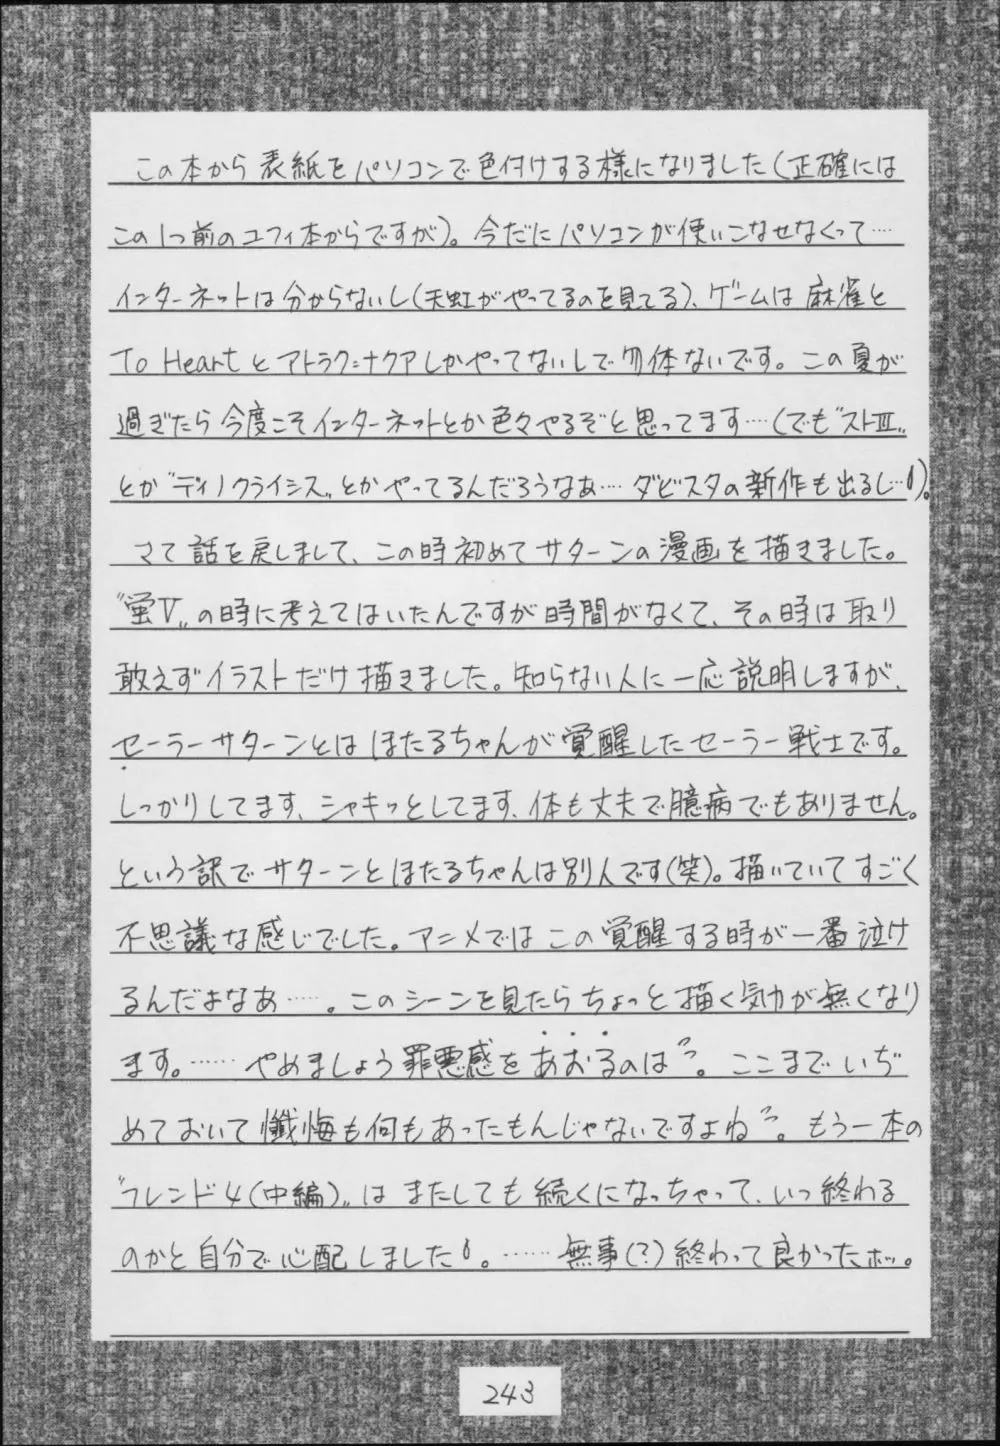 この本から表紙をパソコンで色付けする様になりました(正確には
この1つ前のユフィ本からですが)。今だにパソコンが使いこなせなくって……
インターネットは分からないし(天虹がやってるのを見てる)、ゲームは麻雀と
To Heartとアトラク=ナクアしかやってないしで勿体ないです。この夏が
過ぎたら今度こそインターネットとか色々やるぞと思ってます……(でも〝ストⅢ〟
とか〝ディノクライシス〟とかやってるんだろうなあ…… ダビスタの新作も出るし…)。
さて話を戻しまして、この時初めてサターンの漫画を描きました。
〝蛍Ⅴ〟の時に考えてはいたんですが時間がなくて、その時は取り
敢えずイラストだけ描きました。知らない人に一応説明しますが、
セーラーサターンとはほたるちゃんが覚醒したセーラー戦士です。
しっかりしてます、シャキッとしてます、体も丈夫で臆病でもありません。
という訳でサターンとほたるちゃんは別人です(笑)。描いていてすごく
不思議な感じでした。アニメではこの覚醒する時が一番泣け
るんだよなあ……。このシーンを見たらちょっと描く気力が無くなり
ます。…… やめましょう罪悪感をあおるのは。ここまでいぢ
めておいて懺悔も何もあったもんじゃないですよね。もう一本の
〝フレンド4(中編)〟はまたしても続くになっちゃって、いつ終わる
のかと自分で心配しました。……無事(?)終わって良かったホッ。
243